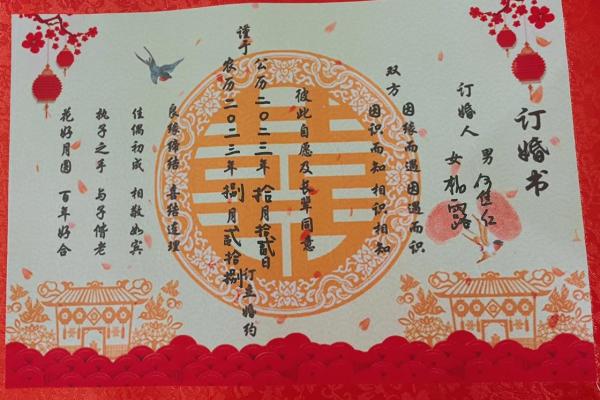 订婚书
订婚人
男
女 杨露
双方
因缘而遇 因遇而识
因识而知 相识相知
彼此自愿及长辈同意
谨于
公历二〇二三年拾月拾贰日
农历二〇二三年捌月贰拾捌
订立婚约
良缘缔结 喜结连理
佳偶初成 相敬如宾
执子之手 与子偕老
花好月圆 百年好合